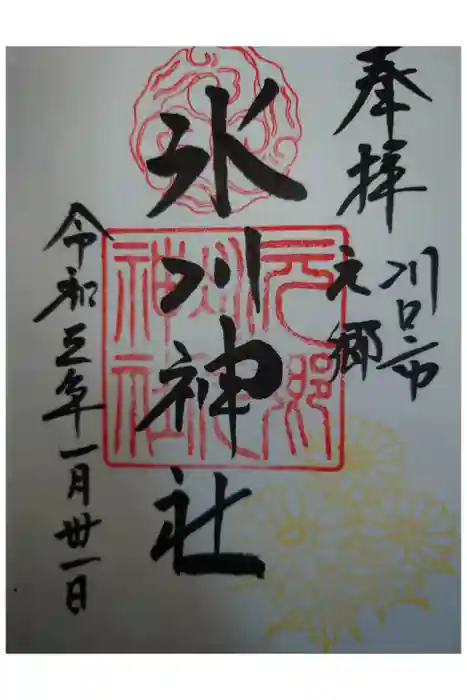 奉拝
川口市
元郷
氷川神社
令和五年一月丗一日
元郷
神社